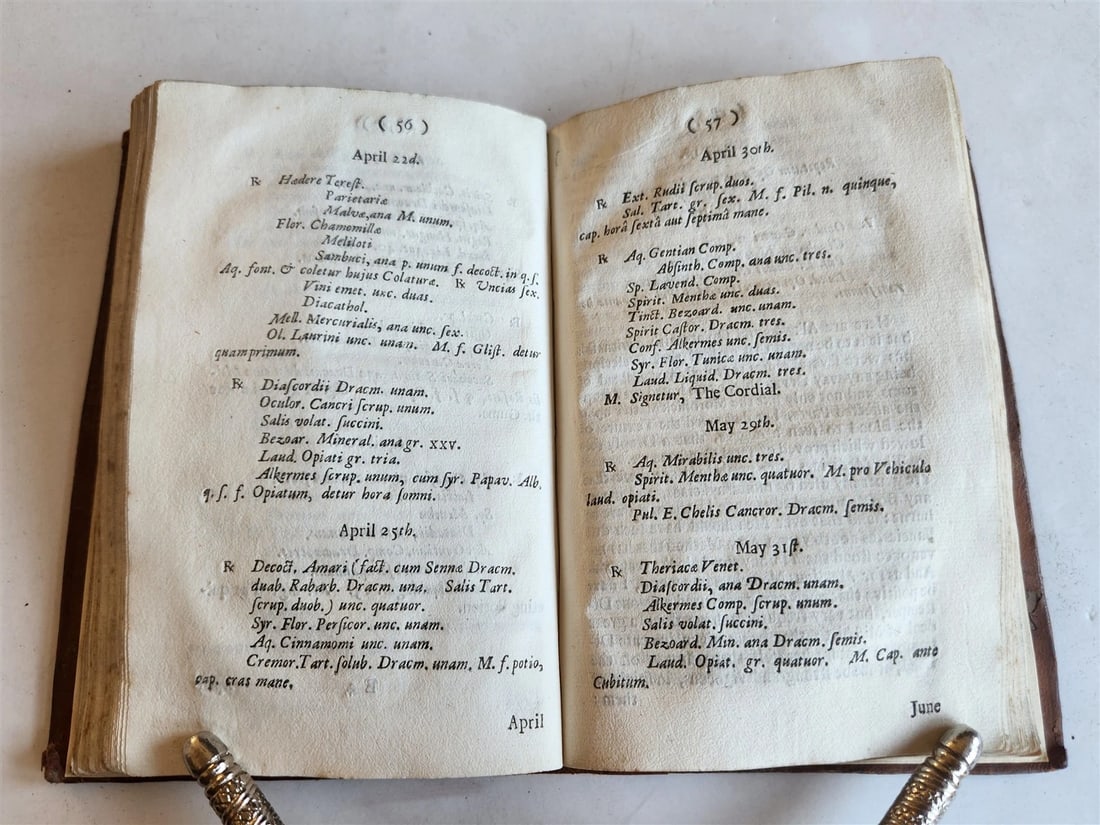 ( 56 )
April 22d.
℞ Hædere Tereſt.
Parietariæ
Malvæ, ana M. unum.
Flor. Chamomillæ
Meliloti
Sambuci, ana p. unum f. decoct. in q. ſ.
Aq. font. & coletur hujus Colaturæ. ℞ Uncias ſex.
Vini emet. unc. duas.
Diacathol.
Mell. Mercurialis, ana unc. ſex.
Ol. Laurini unc. unam. M. f. Gliſt. detur
quamprimum.
℞ Diaſcordii Dracm. unam.
Oculor. Cancri ſcrup. unum.
Salis volat. ſuccini.
Bezoar. Mineral. ana gr. xxv.
Laud. Opiati gr. tria.
Alkermes ſcrup. unum, cum ſyr. Papav. Alb.
q. ſ. f. Opiatum, detur hora ſomni.
April 25th.
℞ Decoct. Amari (fact. cum Sennæ Dracm.
duab. Rabarb. Dracm. una. Salis Tart.
ſcrup. duob.) unc. quatuor.
Syr. Flor. Perſicor. unc. unam.
Aq. Cinnamomi unc. unam.
Cremor. Tart. ſolub. Dracm. unam. M. f. potio,
cap. cras mane.
April
( 57 )
April 30th.
℞ Ext. Rudii ſcrup. duos.
Sal. Tart. gr. ſex. M. f. Pil. n. quinque,
cap. horâ ſextâ aut ſeptimâ mane.
℞ Aq. Gentian Comp.
Abſinth. Comp. ana unc. tres.
Sp. Lavend. Comp.
Spirit. Menthæ unc. duas.
Tinct. Bezoard. unc. unam.
Spirit Caſtor. Dracm. tres.
Conf. Alkermes unc. ſemis.
Syr. Flor. Tunicæ unc. unam.
Laud. Liquid. Dracm. tres.
M. Signetur, The Cordial.
May 29th.
℞ Aq. Mirabilis unc. tres.
Spirit. Menthæ unc. quatuor. M. pro Vehiculo
laud. opiati.
Pul. E. Chelis Cancror. Dracm. ſemis.
May 31ſt.
℞ Theriacæ Venet.
Diaſcordii, ana Dracm. unam.
Alkermes Comp. ſcrup. unum.
Salis volat. ſuccini.
Bezoard. Min. ana Dracm. ſemis.
Laud. Opiat. gr. quatuor. M. Cap. ante
Cubitum.
June